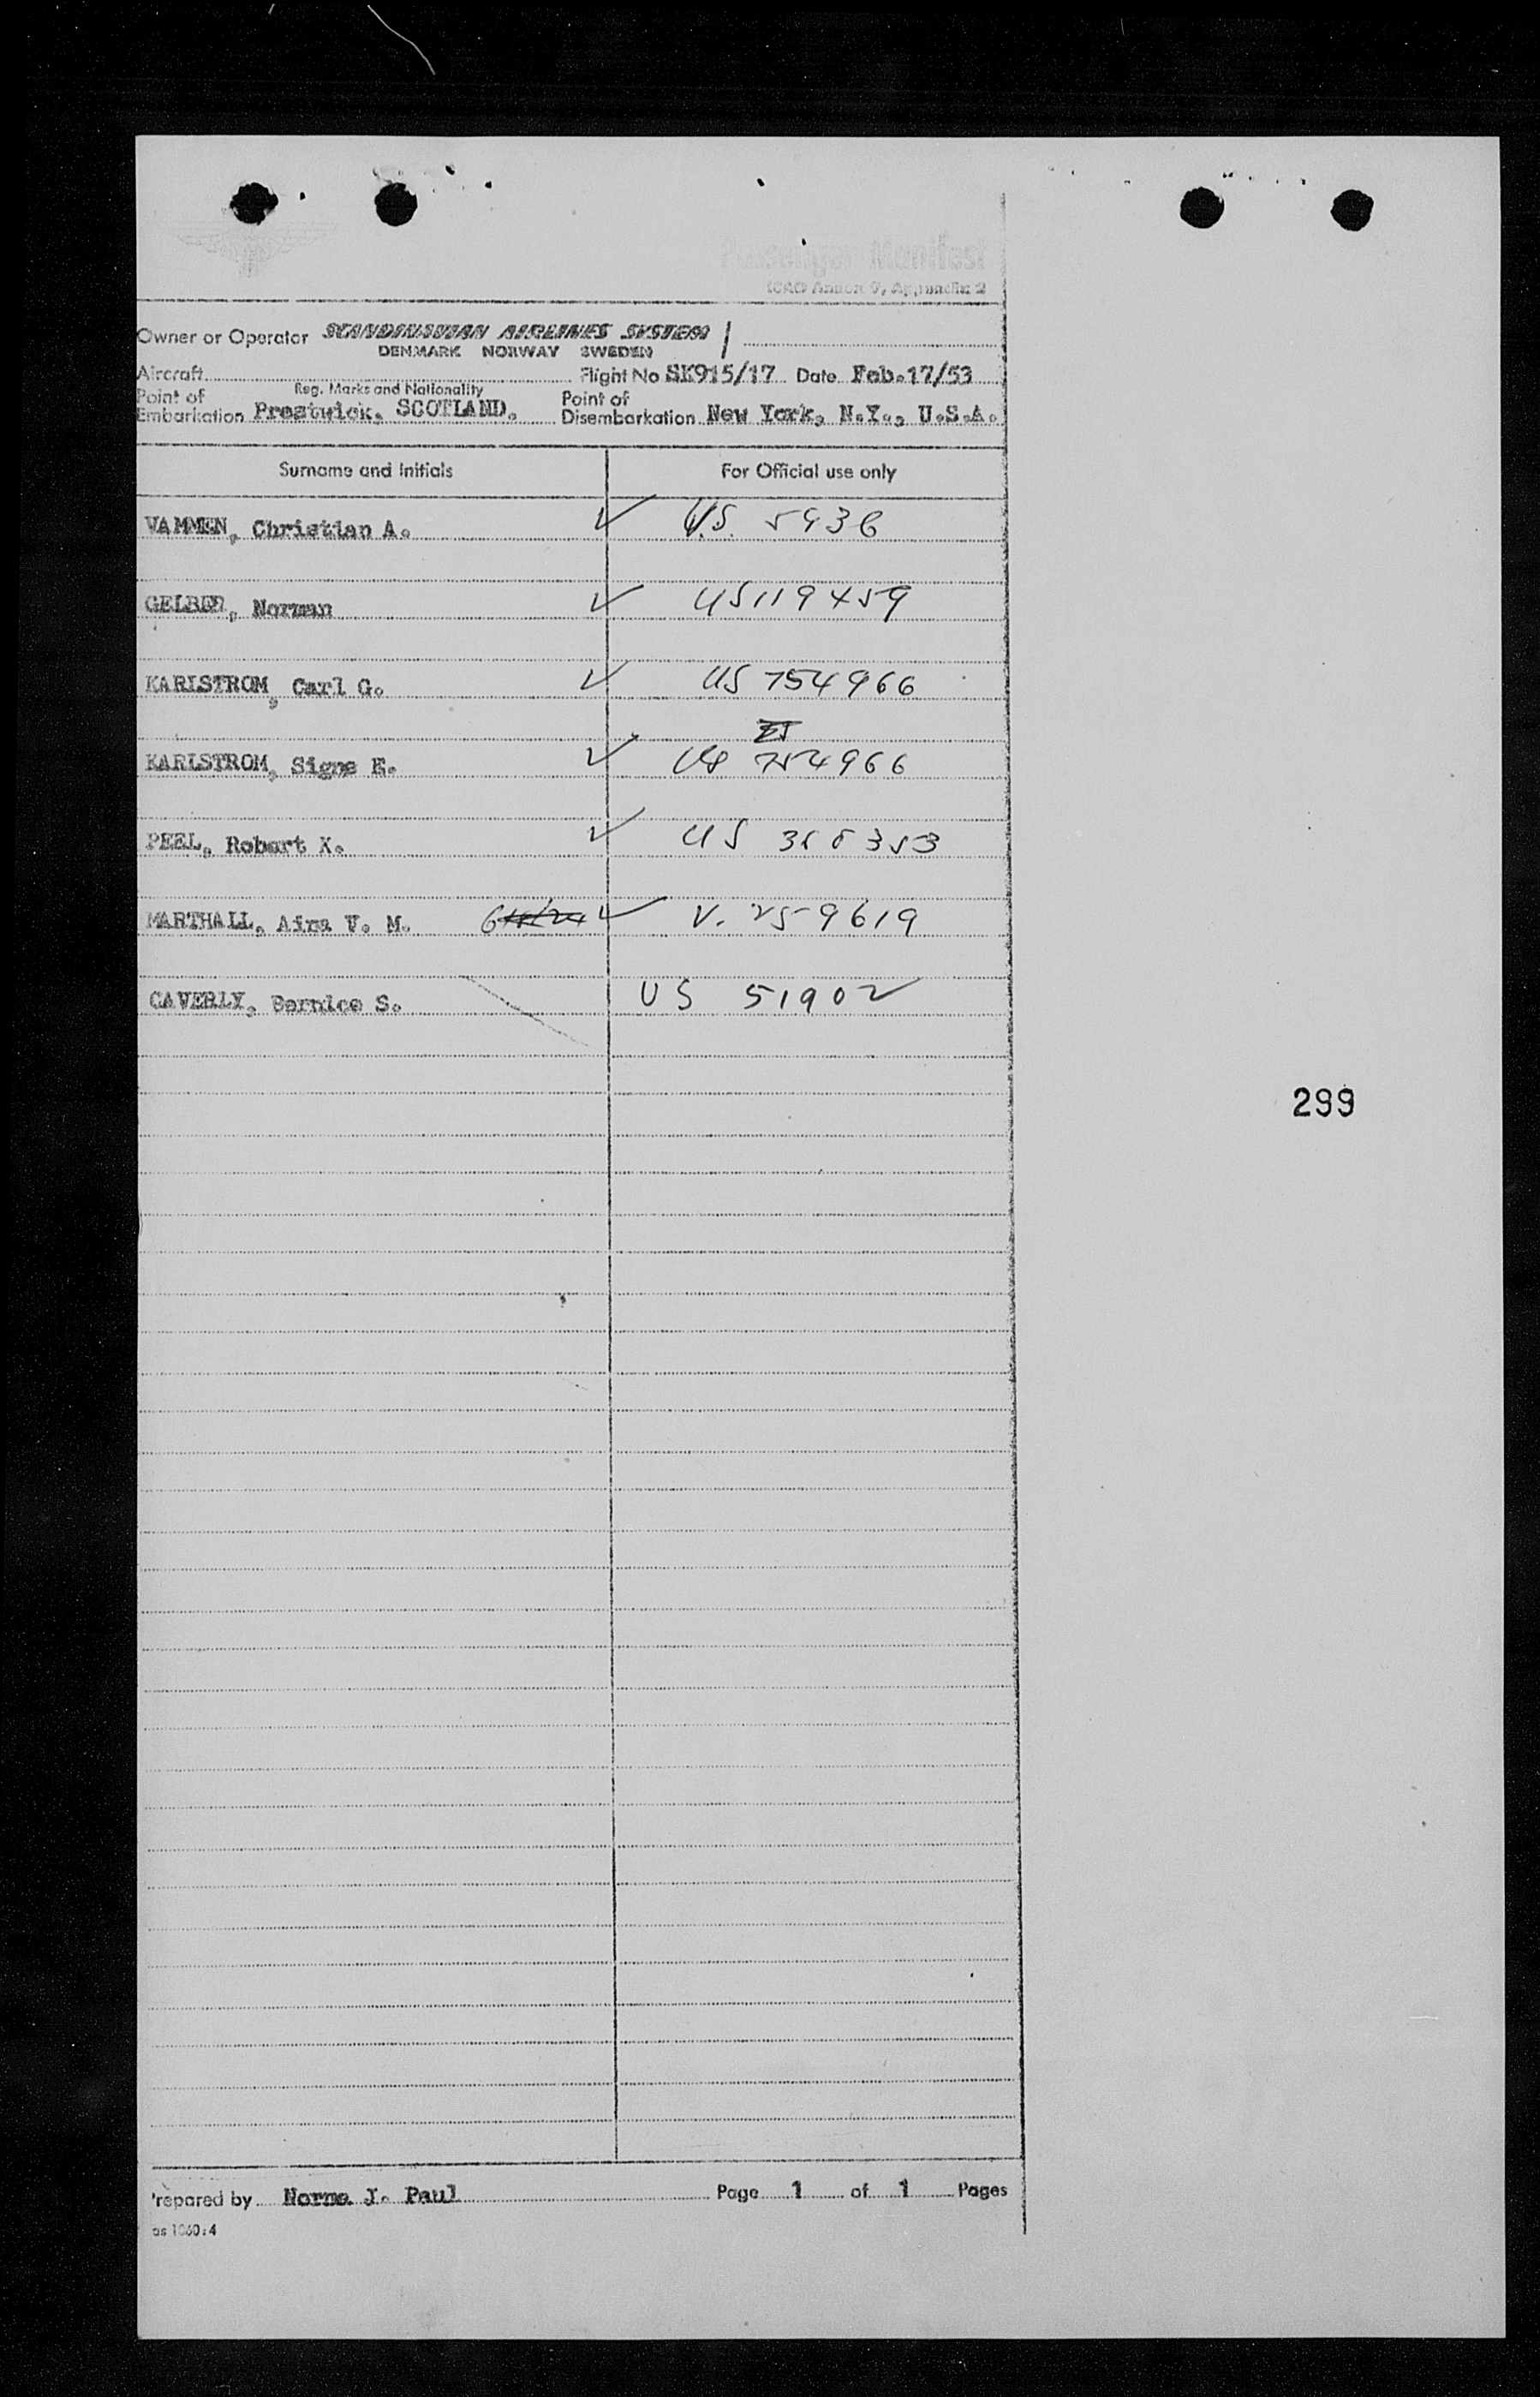 Passenger Manifest
ICAO Annex 9, Appendix 2
Owner or Operator SCANDINAVIAN AIRLINES SYSTEM
DENMARK NORWAY SWEDEN
Aircraft Flight No SK915/17 Date Feb.17/53
Reg. Marks and Nationality
Point of Embarkation Prestwick, SCOTLAND. Point of Disembarkation New York, N.Y., U.S.A.
Surname and Initials For Official use only
VAMMEN, Christian A. ✓ U.S. 5936
GELBER, Norman ✓ US119459
KARLSTROM, Carl G. ✓ US 754966
KARLSTROM, Signe E. ✓ US 754966
PEEL, Robert X. ✓ US 355353
MARTHALL, Aira U. M. ✓ V. 259619
CAVERLY, Bernice S. US 51902
299
Prepared by Norma J. Paul Page 1 of 1 Pages
as 1060:4